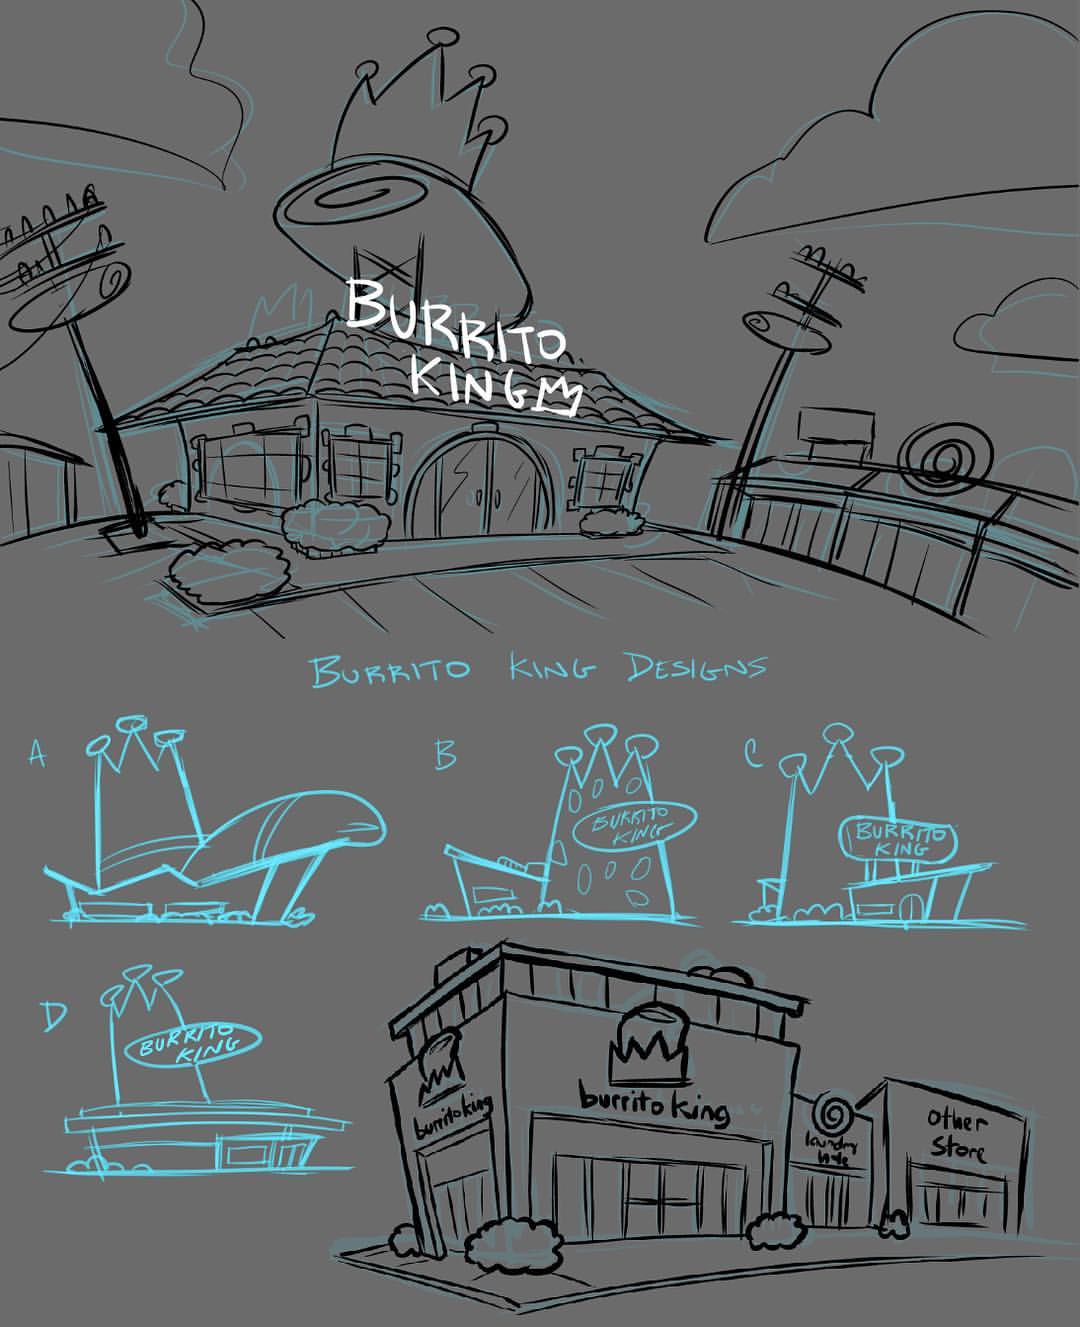 BURRITO
KING
BURRITO KING DESIGNS
A
B
BURRITO
KING
C
BURRITO
KING
D
BURRITO
KING
burrito king
burrito king
laundry
other
store